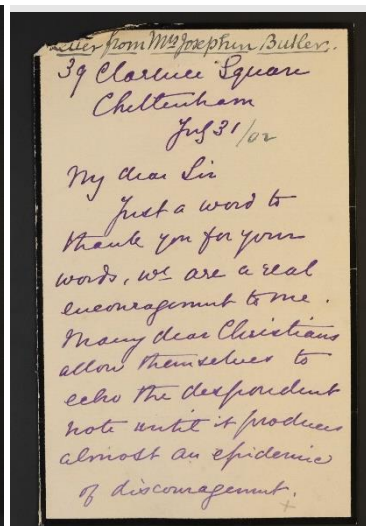 Letter from Mrs Josephine Butler.
39 Clarence Square
Cheltenham
July 31/02
My dear Sir
Just a word to
thank you for your
words, wh are a real
encouragement to me.
Many dear Christians
allow themselves to
echo the despondent
note until it produces
almost an epidemic
of discouragement.